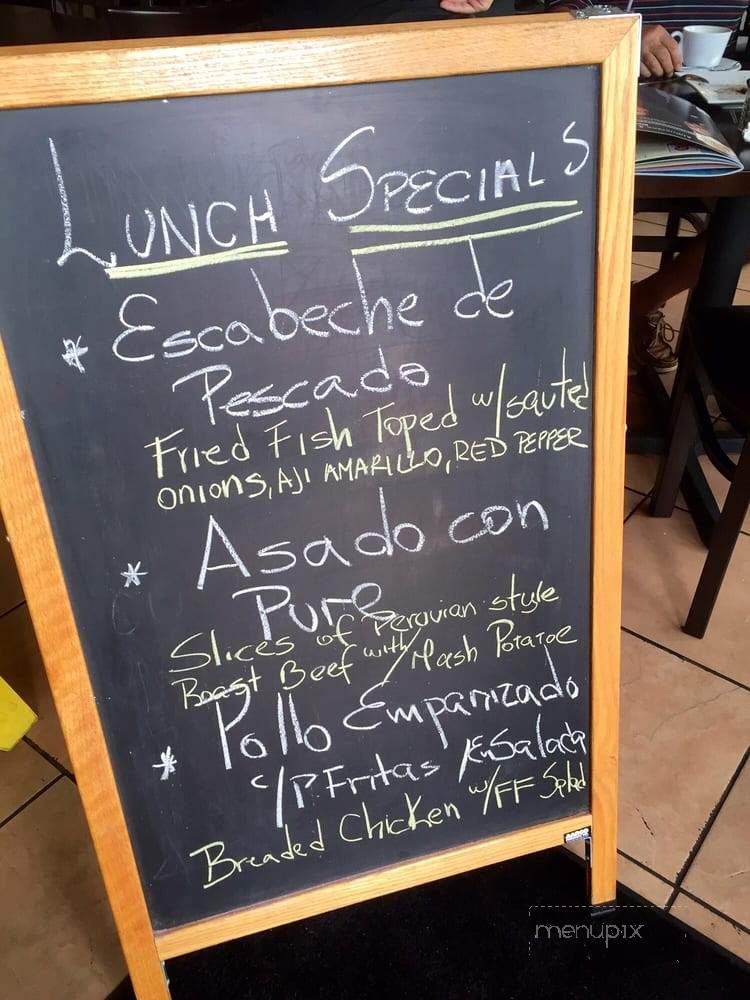 LUNCH SPECIALS
* Escabeche de
Pescado
Fried Fish Toped w/sauted
onions, AJI AMARILLO, RED PEPPER
* Asado con
Pure
Slices of Peruvian style
Roast Beef with/Mash Potatoe
* Pollo Empanizado
c/P Fritas /EnSalada
Breaded Chicken w/FF Salad
menupix